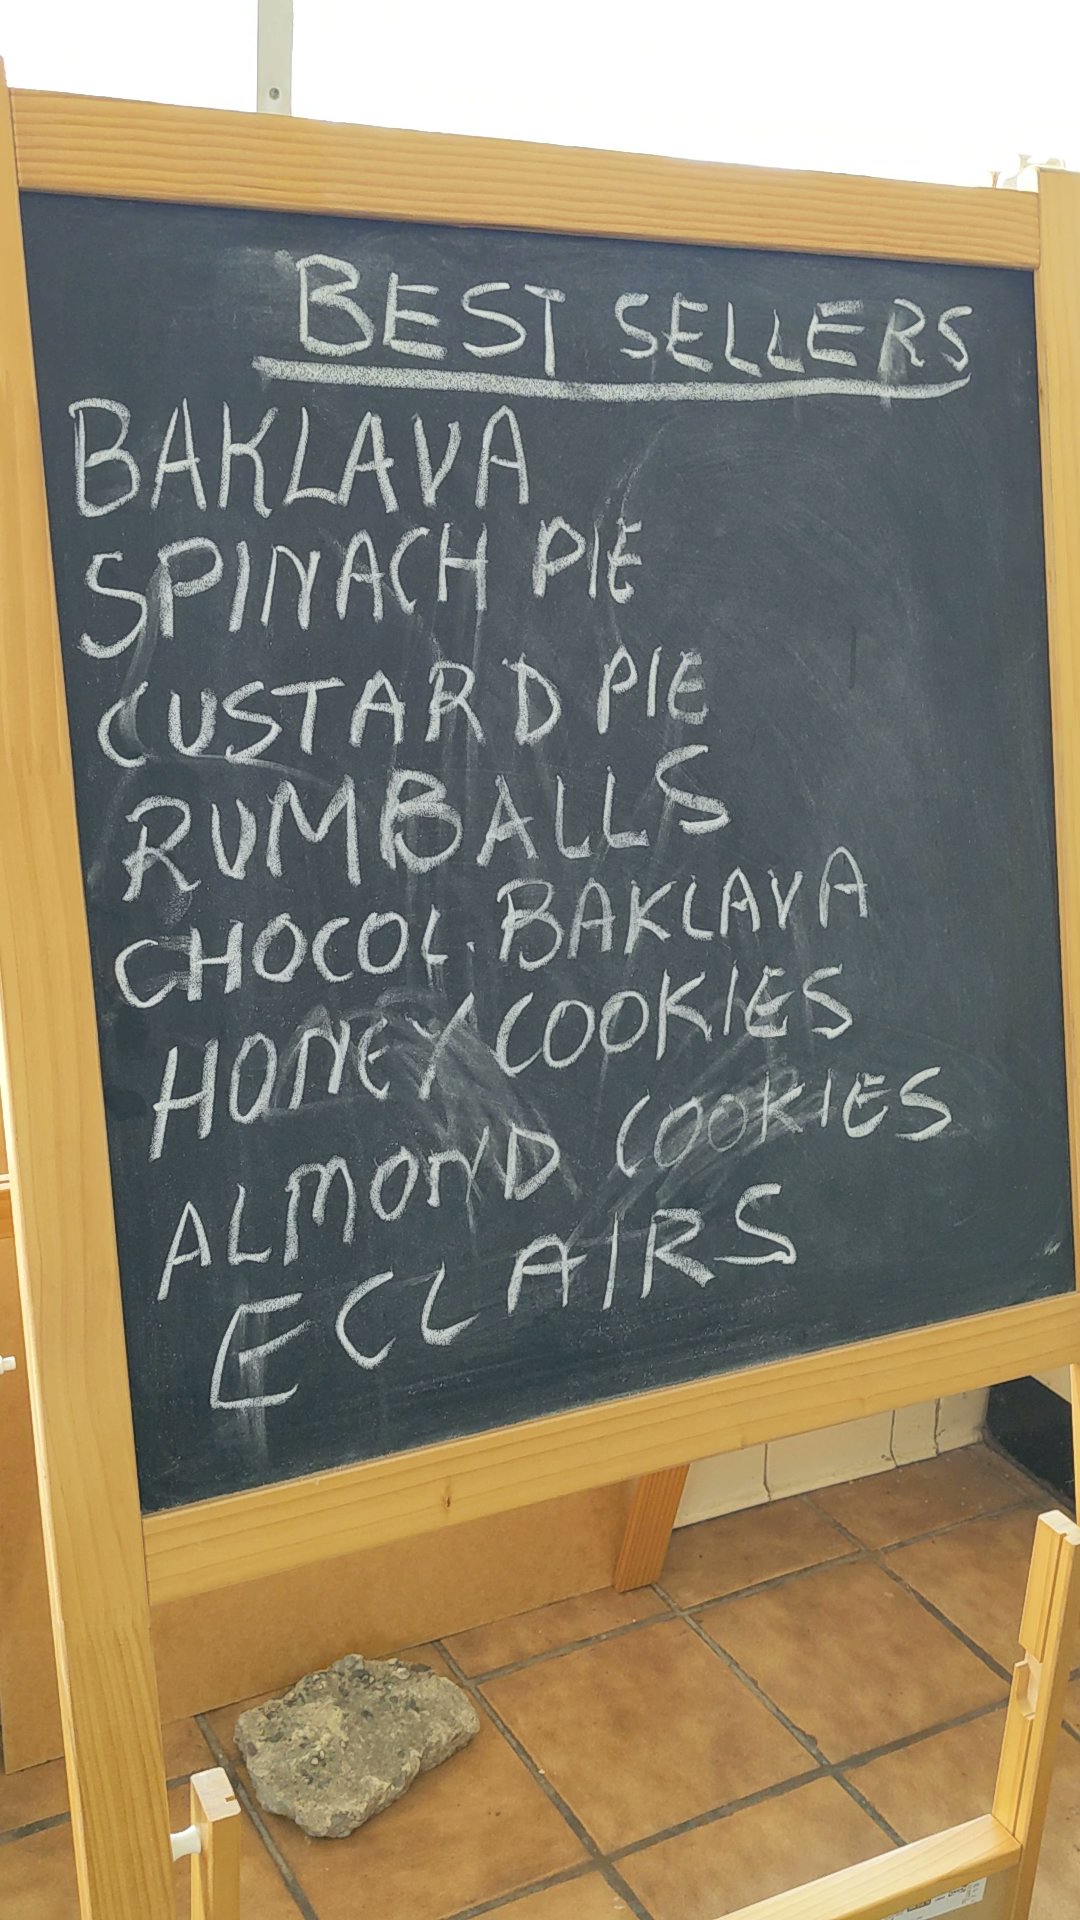 BEST SELLERS
BAKLAVA
SPINACH PIE
CUSTARD PIE
RUMBALLS
CHOCOL. BAKLAVA
HONEY COOKIES
ALMOND COOKIES
ECLAIRS